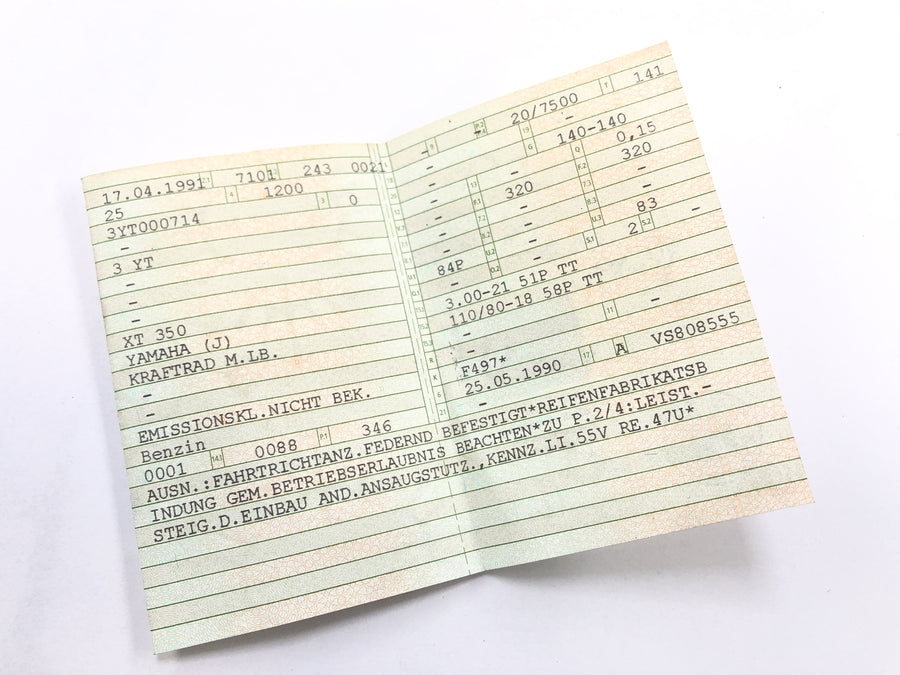 17.04.1991 7101 243 0021
25 4 1200 3 0
3YT000714
–
3 YT
–
–
–
XT 350
YAMAHA (J)
KRAFTRAD M.LB.
–
–
EMISSIONSKL.NICHT BEK.
Benzin
0001 14.1 0088 P.1 346
– 20/7500 7 141
– – 140-140
– G Q 0,15
– 13 320 320
– –
– – 83
84P – 2 S.2 –
–
3.00-21 51P TT
110/80-18 58P TT
–
– 11 –
F497*
25.05.1990 17 A VS808555
–
AUSN.:FAHRTRICHTANZ.FEDERND BEFESTIGT*REIFENFABRIKATSB
INDUNG GEM.BETRIEBSERLAUBNIS BEACHTEN*ZU P.2/4:LEIST.-
STEIG.D.EINBAU AND.ANSAUGSTUTZ.,KENNZ.LI.55V RE.47U*